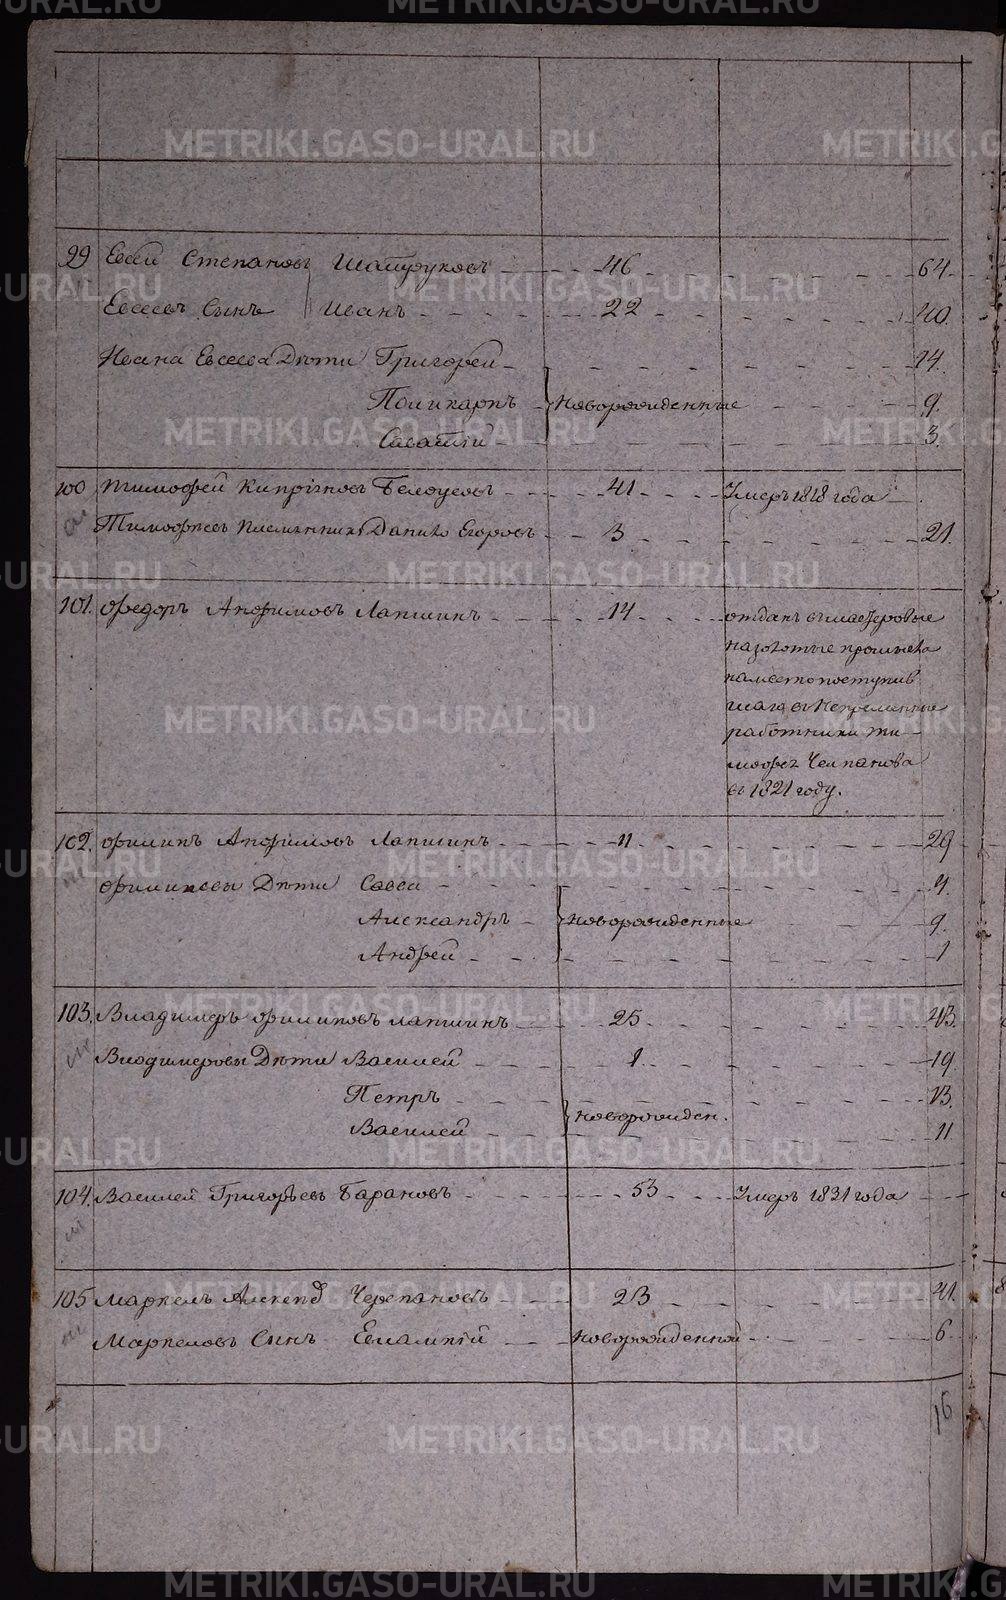 METRIKI.GASO-URAL.RU
99 Евсей Степановъ Шатруковъ 46 64
Евсеевъ Сынъ Иванъ 22 40
Ивана Евсеева Дѣти Григорей 14
Поликарпъ Новорожденные 9
Саватий 3
100 Тимофей Киприяновъ Белоусовъ 41 Умеръ 1818 года
Тимофеевъ Данило Егоровъ 3 21
101. Федоръ Анфимовъ Лапшинъ 14 отданъ в мастеровые
на золотые промысла
на место поступив
шаго въ Непременные
работники Ти
мофея Челпанова
въ 1821 году.
102. Филипъ Анфимовъ Лапшинъ 11 29
Филиповы Дѣти Савва
Александръ новорожденные 9
Андрей 1
103. Владимеръ Филиповъ Лапшинъ 25 43
Владимеровы Дѣти Василей 1 19
Петръ 13
Василей новорожден. 11
104. Василей Григорьевъ Барановъ 53 Умеръ 1831 года
105 Маркелъ Черепановъ 23 41
Маркеловъ Сынъ Евлампий новорожденной 6
16